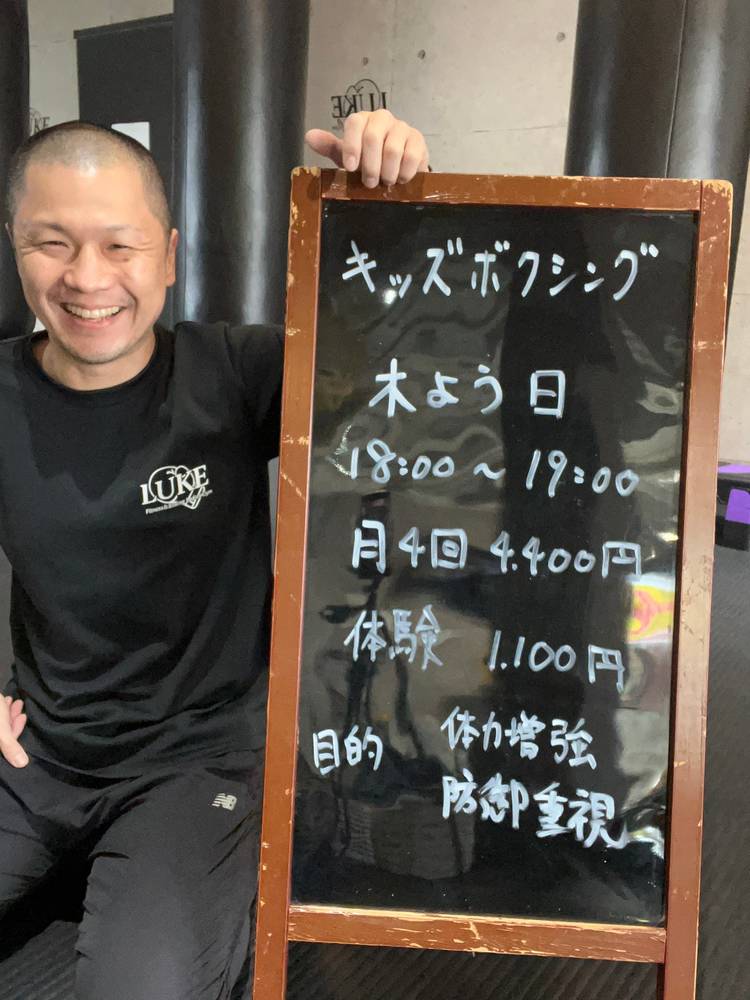 キッズボクシング
木よう日
18:00～19:00
月4回 4.400円
体験 1.100円
目的 体力増強
防御重視
LUKE
LUKE